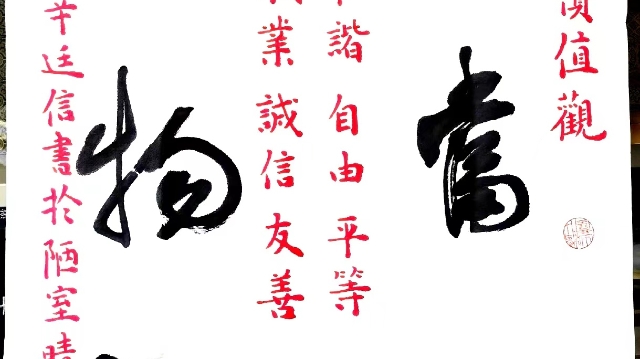 價值觀
當
諧 自由 平等
業 誠信 友善
物
廷信書於陋室晴